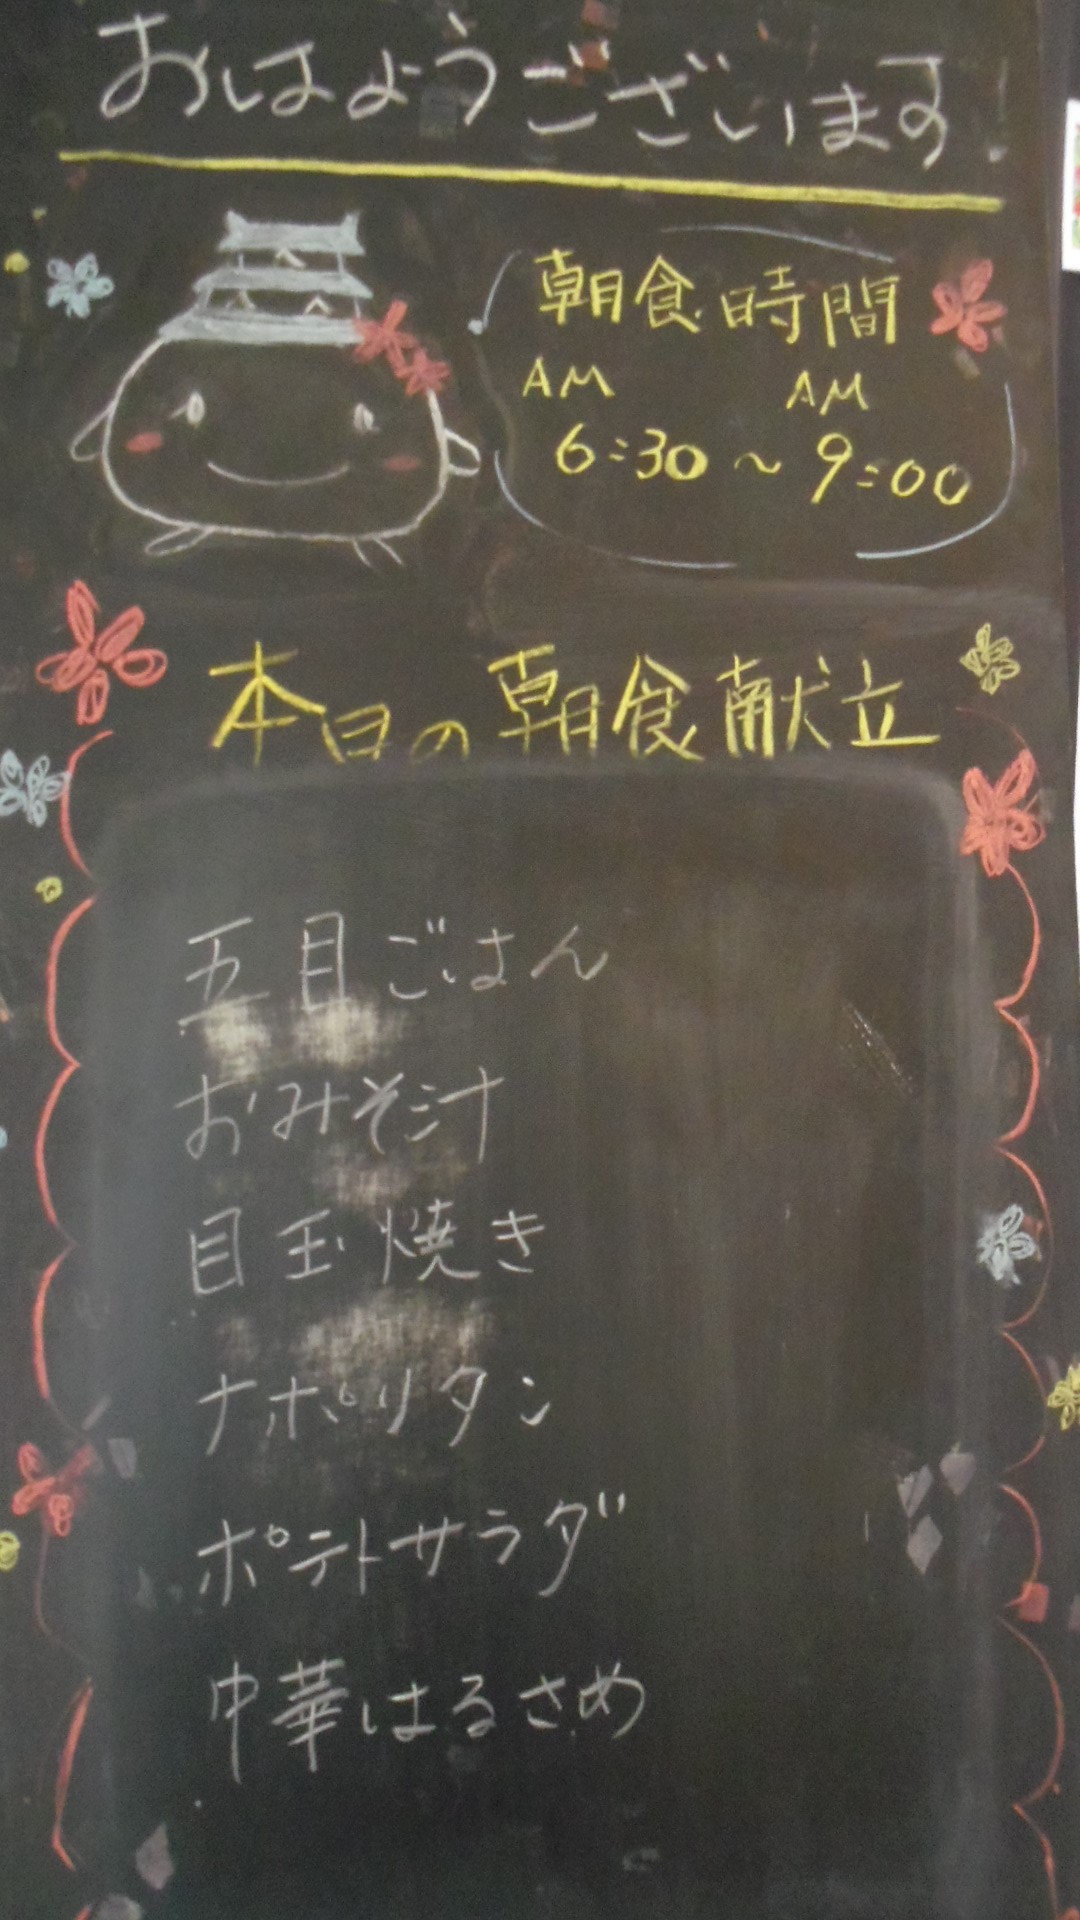 おはようございます!
朝食時間
AM AM
6:30 ~ 9:00
本日の朝食献立
五目ごはん
おみそ汁
目玉焼き
ナポリタン
ポテトサラダ
中華はるさめ